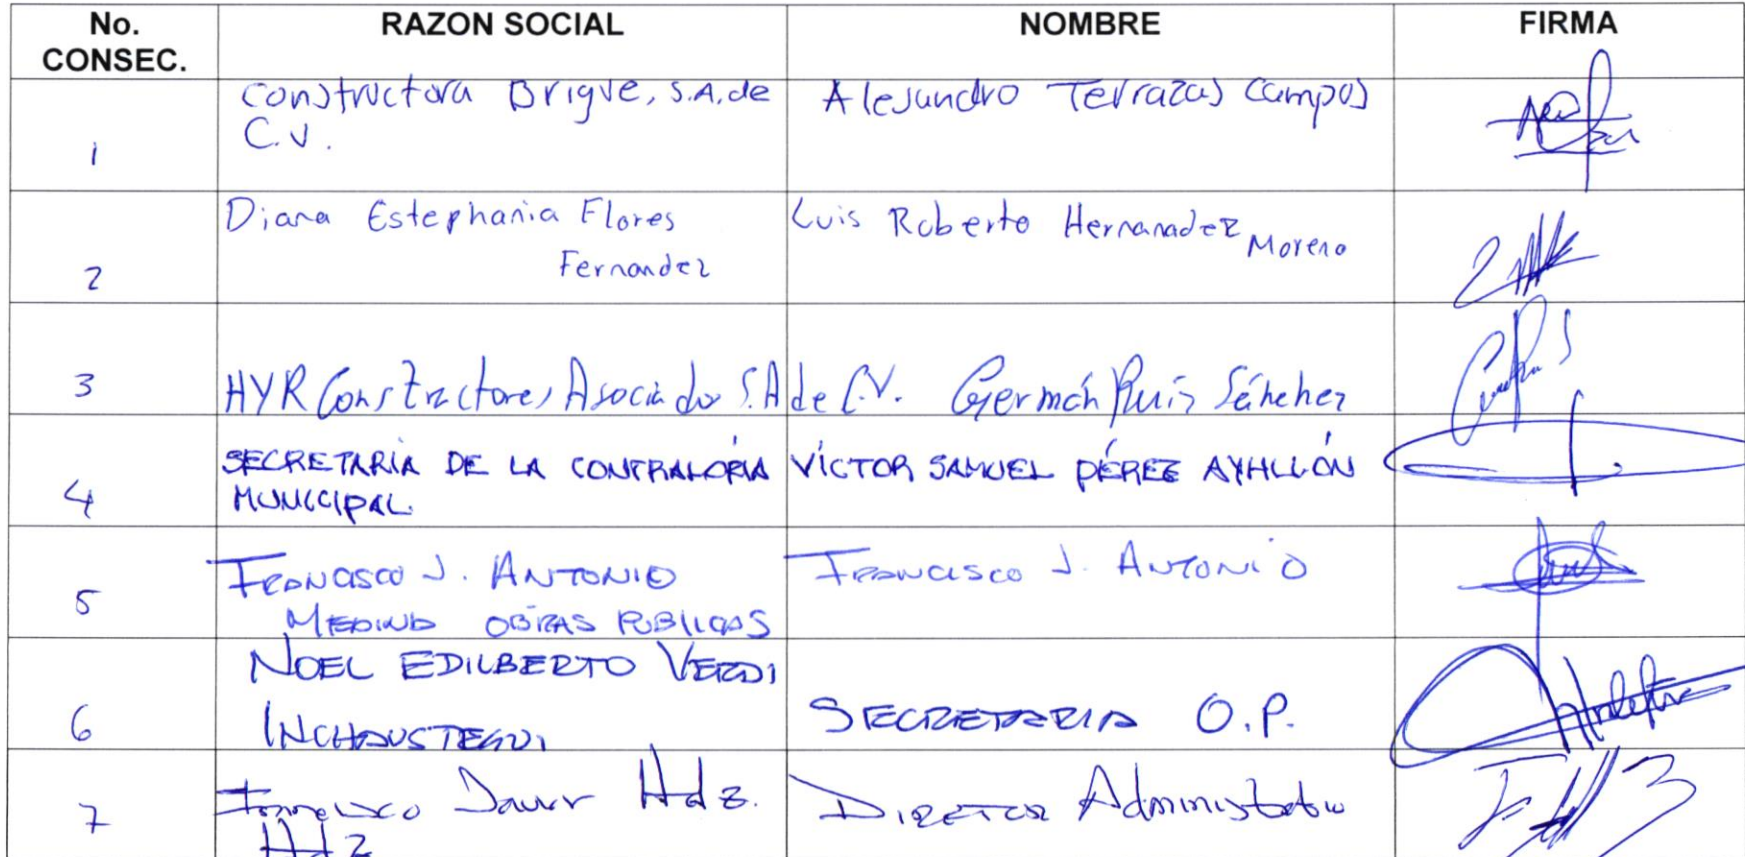 No. CONSEC. RAZON SOCIAL NOMBRE FIRMA
1 Constructora Brigve, S.A. de C.V. Alejandro Terrazas Campos
2 Diana Estephania Flores Fernandez Luis Roberto Hernanadez Moreno
3 HYR Constructores Asociados S.A de C.V. Germán Ruiz Sánchez
4 SECRETARÍA DE LA CONTRALORÍA MUNICIPAL VÍCTOR SAMUEL PÉREZ AYHLLÓN
5 FRANCISCO J. ANTONIO MEDINA OBRAS PUBLICAS FRANCISCO J. ANTONIO
6 NOEL EDILBERTO VERDI INCHAUSTEGUI SECRETARIA O.P.
7 Francisco Javier Hdz. Hdz DIRECTOR Administrativo